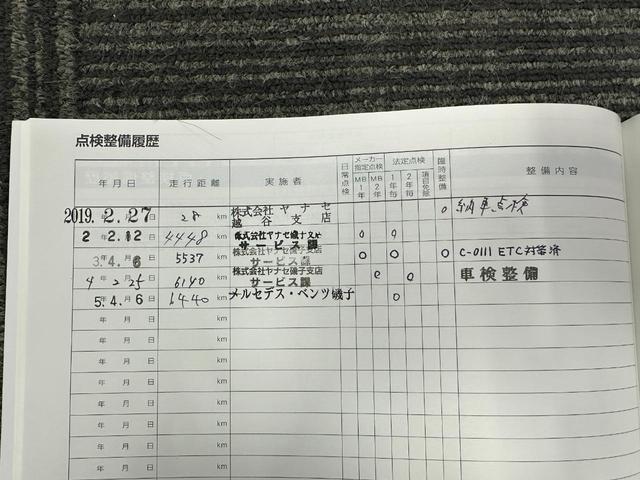 点検整備履歴
年月日 走行距離 実施者 日常点検 メーカー指定点検 MB1年 MB2年 法定点検 1年毎 2年毎 項目免除 臨時整備 整備内容
2019. 2. 27 28 km 株式会社 ヤナセ 越谷支店 o 納車点検
2年2.12日 4448 km 株式会社ヤナセ磯子支店 サービス課 o o
3.4.6 5537 km 株式会社ヤナセ磯子支店 サービス課 o o o C-0111 ETC対策済
4 2 25 6140 km 株式会社ヤナセ磯子支店 サービス課 o o 車検整備
5.4.6 6440 km メルセデス・ベンツ磯子 o
年 月 日 km
年 月 日 km
年 月 日 km
年 月 日 km
年 月 日 km
年 月 日 km
年 月 日 km
年 月 日